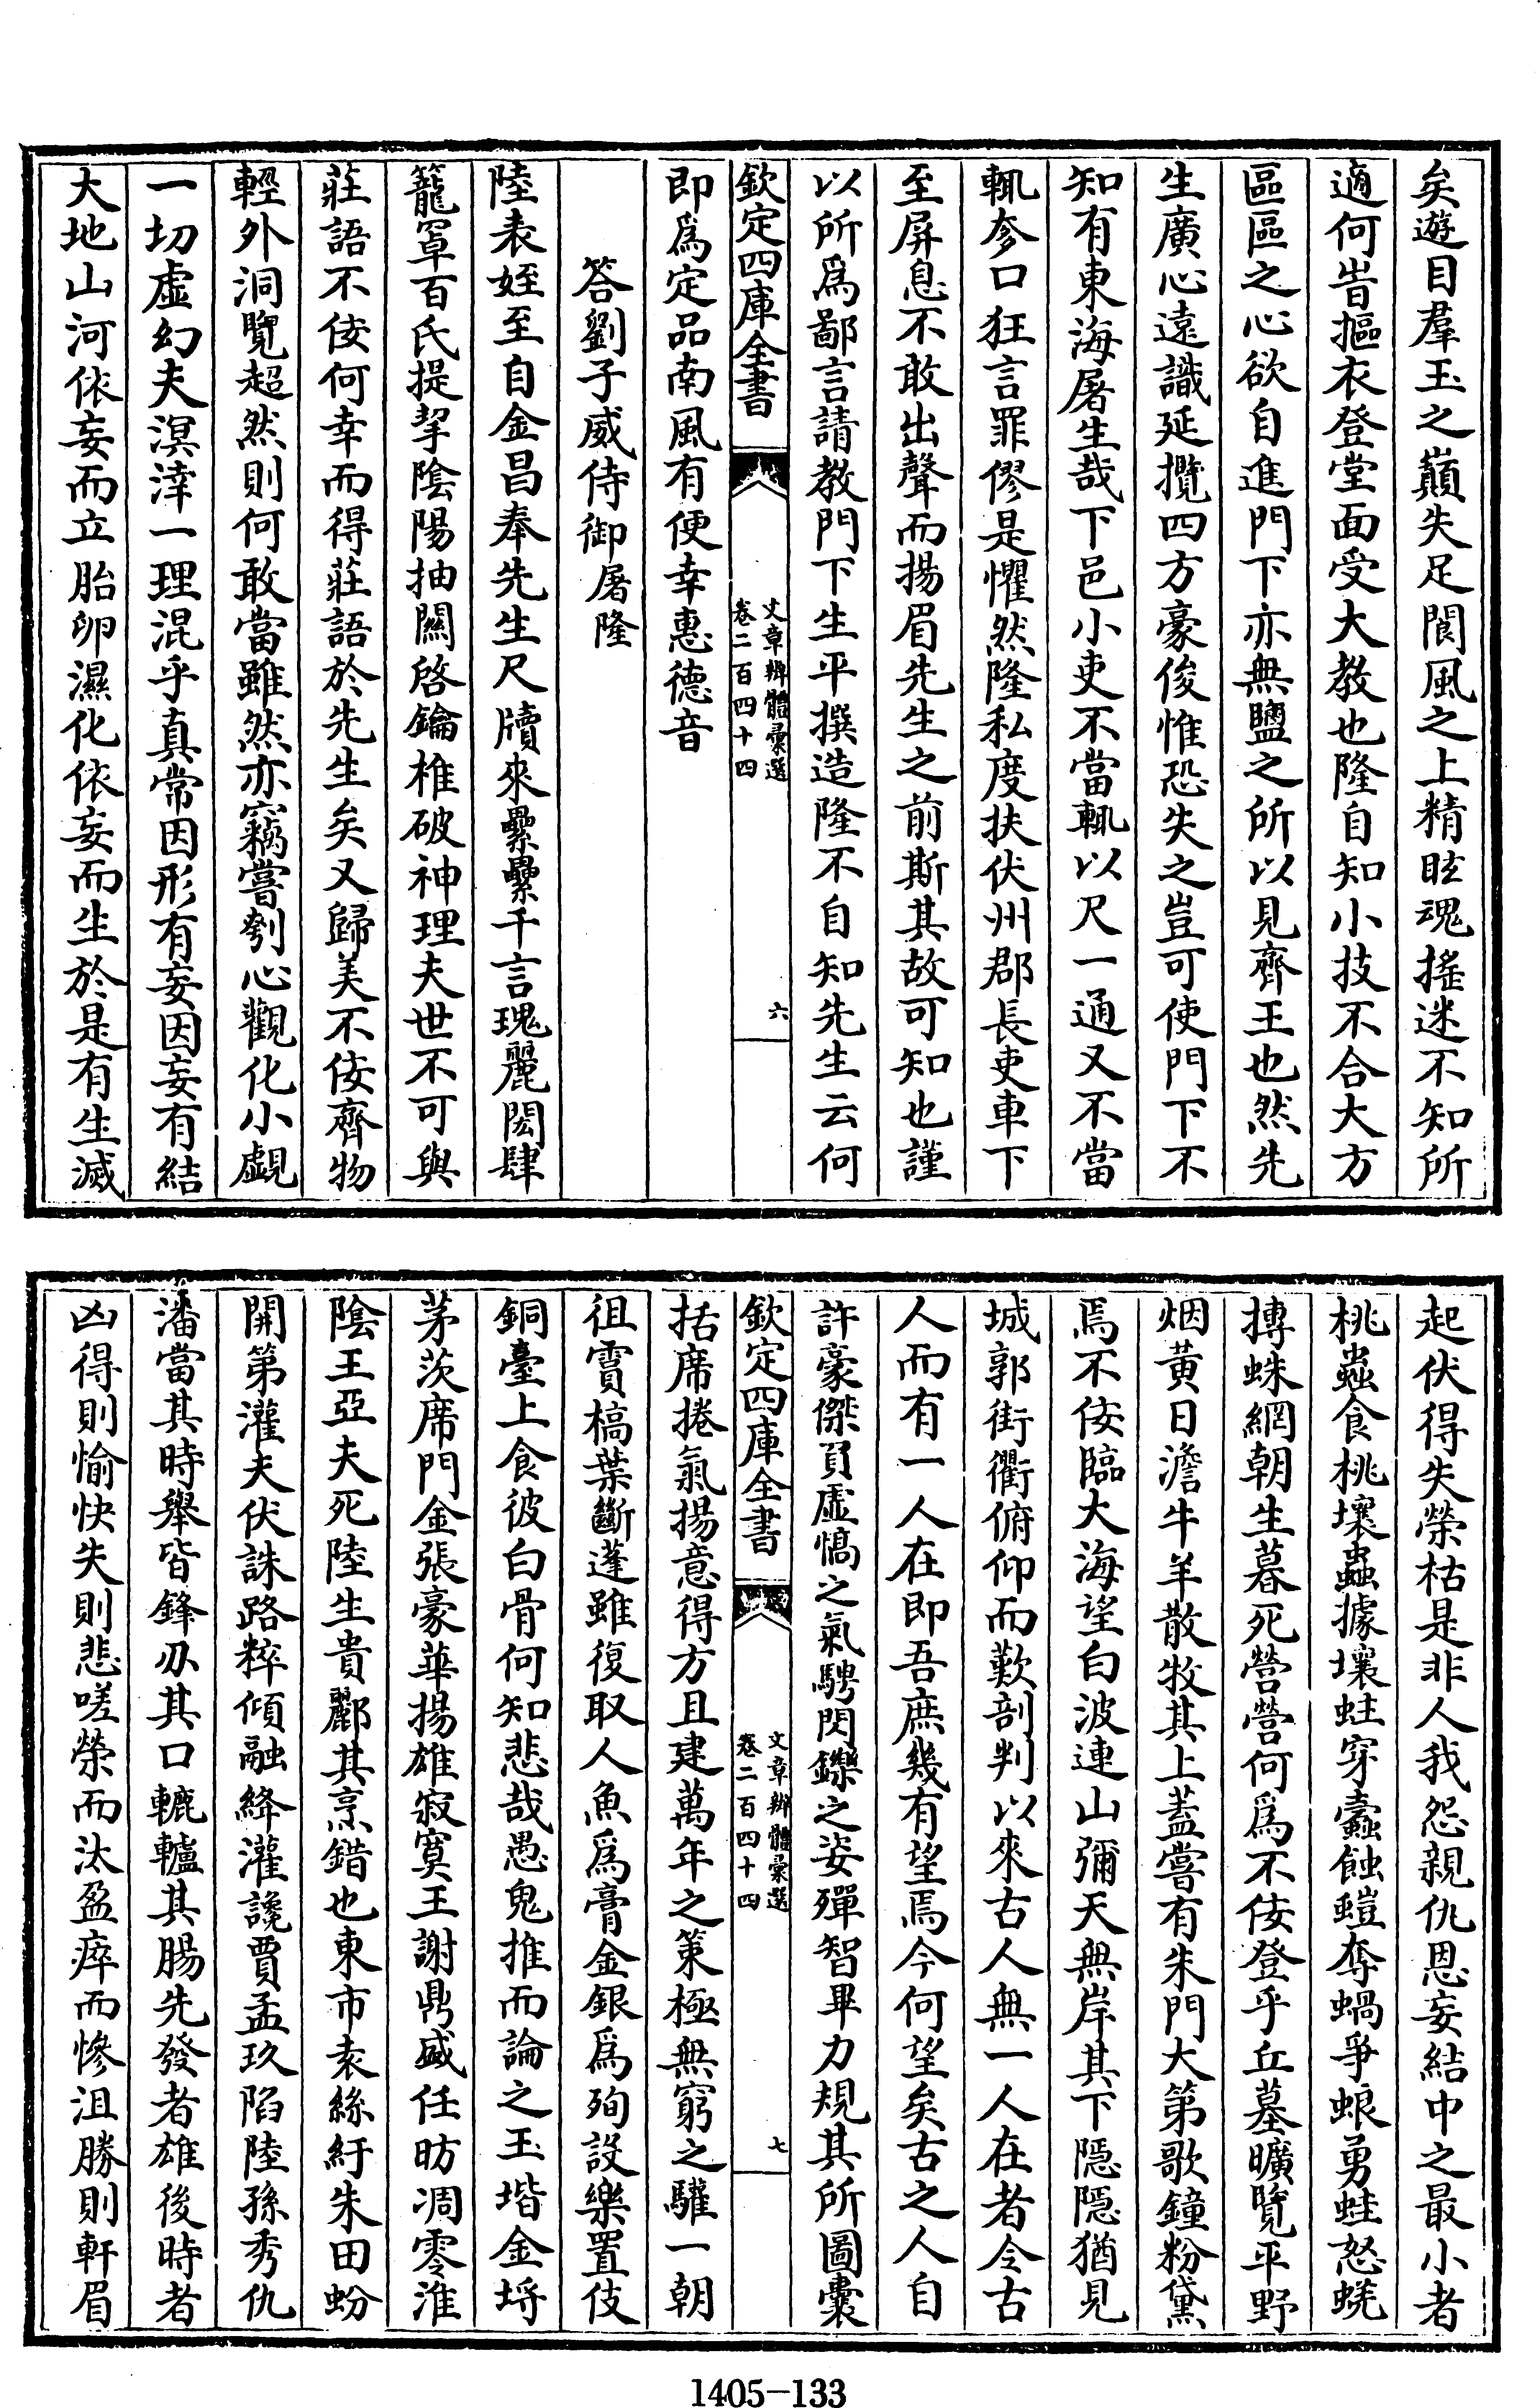 矣遊目羣玉之巔失足閬風之上精眩魂搖迷不知所
適何㫖摳衣登堂面受大教也隆自知小技不合大方
區區之心欲自進門下亦無鹽之所以見齊王也然先
生廣心遠識延攬四方豪俊惟恐失之豈可使門下不
知有東海屠生哉下邑小吏不當輒以尺一通又不當
輒奓口狂言罪僇是懼然隆私度扶伏州郡長吏車下
至屏息不敢出聲而揚眉先生之前斯其故可知也謹
以所爲鄙言請教門下生平撰造隆不自知先生云何
欽定四庫全書
文章辨體彙選
卷二百四十四
六
即爲定品南風有便幸惠德音
答劉子威侍御屠隆
陸表姪至自金昌奉先生尺牘來纍纍千言瑰麗閎肆
籠罩百氏提挈陰陽抽關啓鑰椎破神理夫世不可與
莊語不佞何幸而得莊語於先生矣又歸美不佞齊物
輕外洞覽超然則何敢當雖然亦竊嘗刳心觀化小覷
一切虛幻夫溟涬一理混乎真常因形有妄因妄有結
大地山河依妄而立胎卵濕化依妄而生於是有生滅
起伏得失榮枯是非人我怨親仇恩妄結中之最小者
桃蟲食桃壤蟲據壤蛀穿蠹蝕螘奪蝸爭蜋勇蛙怒蜣
摶蛛網朝生暮死營營何爲不佞登乎丘墓曠覽平野
烟黄日澹牛羊散牧其上蓋嘗有朱門大第歌鐘粉黛
焉不佞臨大海望白波連山彌天無岸其下隱隱猶見
城郭街衢俯仰而歎剖判以來古人無一人在者今古
人而有一人在即吾庶幾有望焉今何望矣古之人自
許豪傑負虛憍之氣騁閃鑠之姿殫智畢力規其所圖囊
欽定四庫全書
文章辨體彙選
卷二百四十四
七
括席捲氣揚意得方且建萬年之策極無窮之驩一朝
徂霣槁葉斷蓬雖復取人魚爲膏金銀爲殉設樂置伎
銅臺上食彼白骨何知悲哉愚鬼推而論之玉堦金埒
茅茨席門金張豪華揚雄寂寞王謝鼎盛任昉凋零淮
陰王亞夫死陸生貴酈其烹錯也東市袁絲紆朱田蚡
開第灌夫伏誅路粹傾融絳灌讒賈孟玖陷陸孫秀仇
潘當其時舉皆鋒刅其口轆轤其腸先發者雄後時者
凶得則愉快失則悲嗟榮而汰盈瘁而慘沮勝則軒眉
1405-133